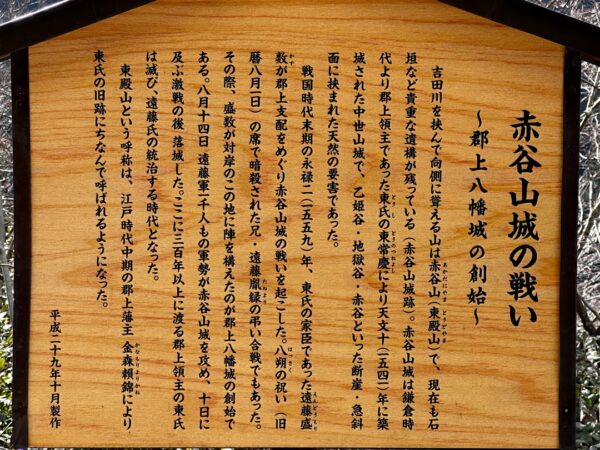 赤谷山城の戦い
～郡上八幡城の創始～
吉田川を挟んで向側に聳える山は赤谷山(東殿山)で、現在も石
垣など貴重な遺構が残っている(赤谷山城跡)。赤谷山城は鎌倉時
代より郡上領主であった東氏の東常慶により天文十(一五四一)年に築
城された中世山城で、乙姫谷・地獄谷・赤谷といった断崖・急斜
面に挟まれた天然の要害であった。
戦国時代末期の永禄二(一五五九)年、東氏の家臣であった遠藤盛
数が郡上支配をめぐり赤谷山城の戦いを起こした。八朔の祝い(旧
暦八月一日)の席で暗殺された兄・遠藤胤縁の弔い合戦でもあった。
その際、盛数が対岸のこの地に陣を構えたのが郡上八幡城の創始で
ある。八月十四日 遠藤軍二千人もの軍勢が赤谷山城を攻め、十日に
及ぶ激戦の後 落城した。ここに三百年以上に渡る郡上領主の東氏
は滅び、遠藤氏の統治する時代となった。
東殿山という呼称は、江戸時代中期の郡上藩主 金森頼錦により
東氏の旧跡にちなんで呼ばれるようになった。
平成二十九年十月製作